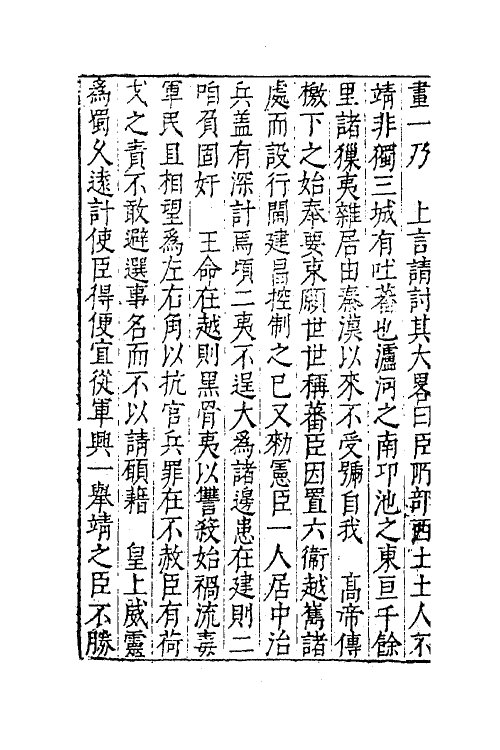 畫一乃　上言請討其大畧曰臣所部西土土人不
靖非獨三城有吐蕃也瀘河之南卭池之東亘千餘
里諸獞夷雜居由秦漢以來不受號自我　高帝傳
檄下之始奉要束願世世稱蕃臣因置六衛越嶲諸
處而設行閫建昌控制之已又勑憲臣一人居中治
兵盖有深計焉頃二夷不逞大為諸邊患在建則二
咱負固奸　王命在越則黑骨夷以讐殺始禍流毒
軍民且相望為左右角以抗官兵罪在不赦臣有荷
戈之責不敢避選事名而不以請碩藉　皇上威靈
為蜀久遠計使臣得便宜從軍興一舉靖之臣不勝